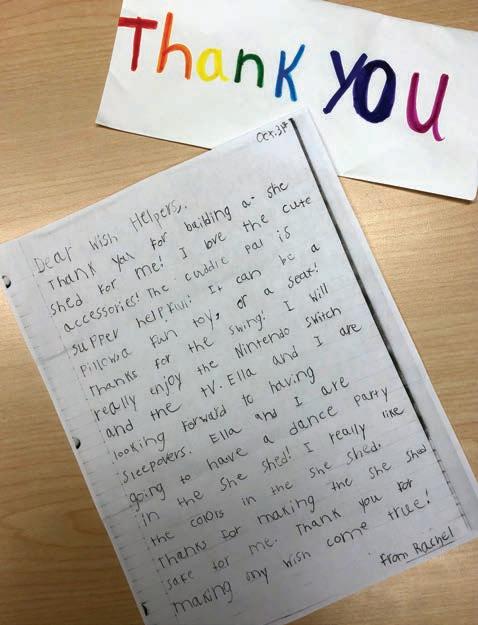 Thank YOU
Oct. 31st
Dear Wish Helpers,
Thank you for building a she
shed for me! I love the cute
accessories! The cuddle pal is
supper helpfull! It can be a
pillow, a fun toy, or a seat!
Thanks for the swing! I will
really enjoy the Nintendo switch
and the TV. Ella and I are
looking forward to having
sleepovers. Ella and I are
going to have a dance party
in the she shed! I really like
the colors in the she shed.
Thanks for making the she shed
safe for me. Thank you for
making my wish come true!
From Rachel